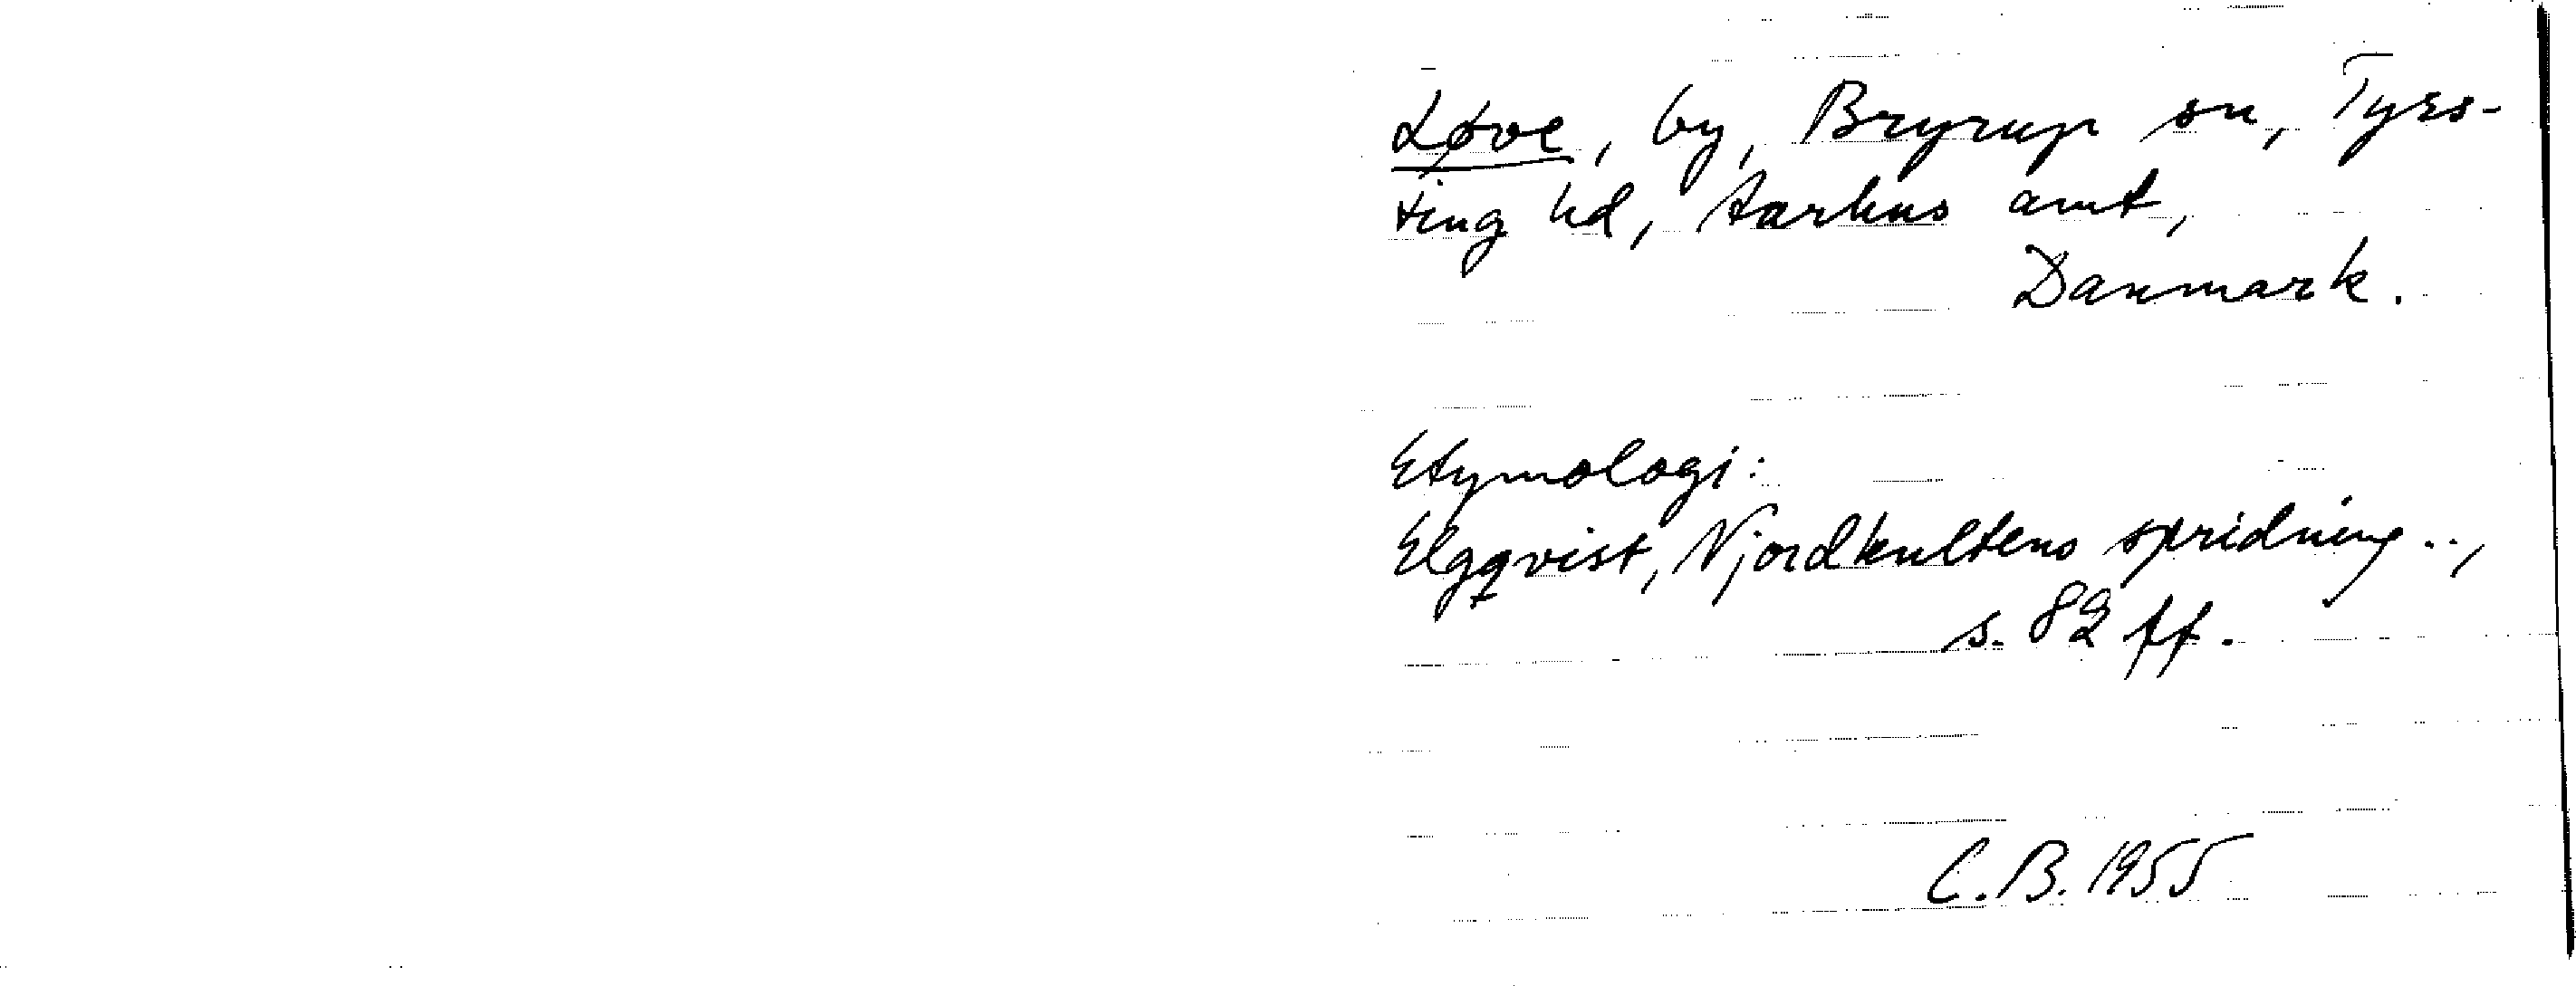 Løve, by, Bryrup sn, Tyrs-
ting hd, Aarhus amt,
Danmark.
Etymologi:
Elgqvist, Njordkultens spridning..,
s. 82 ff.
C.B. 1955